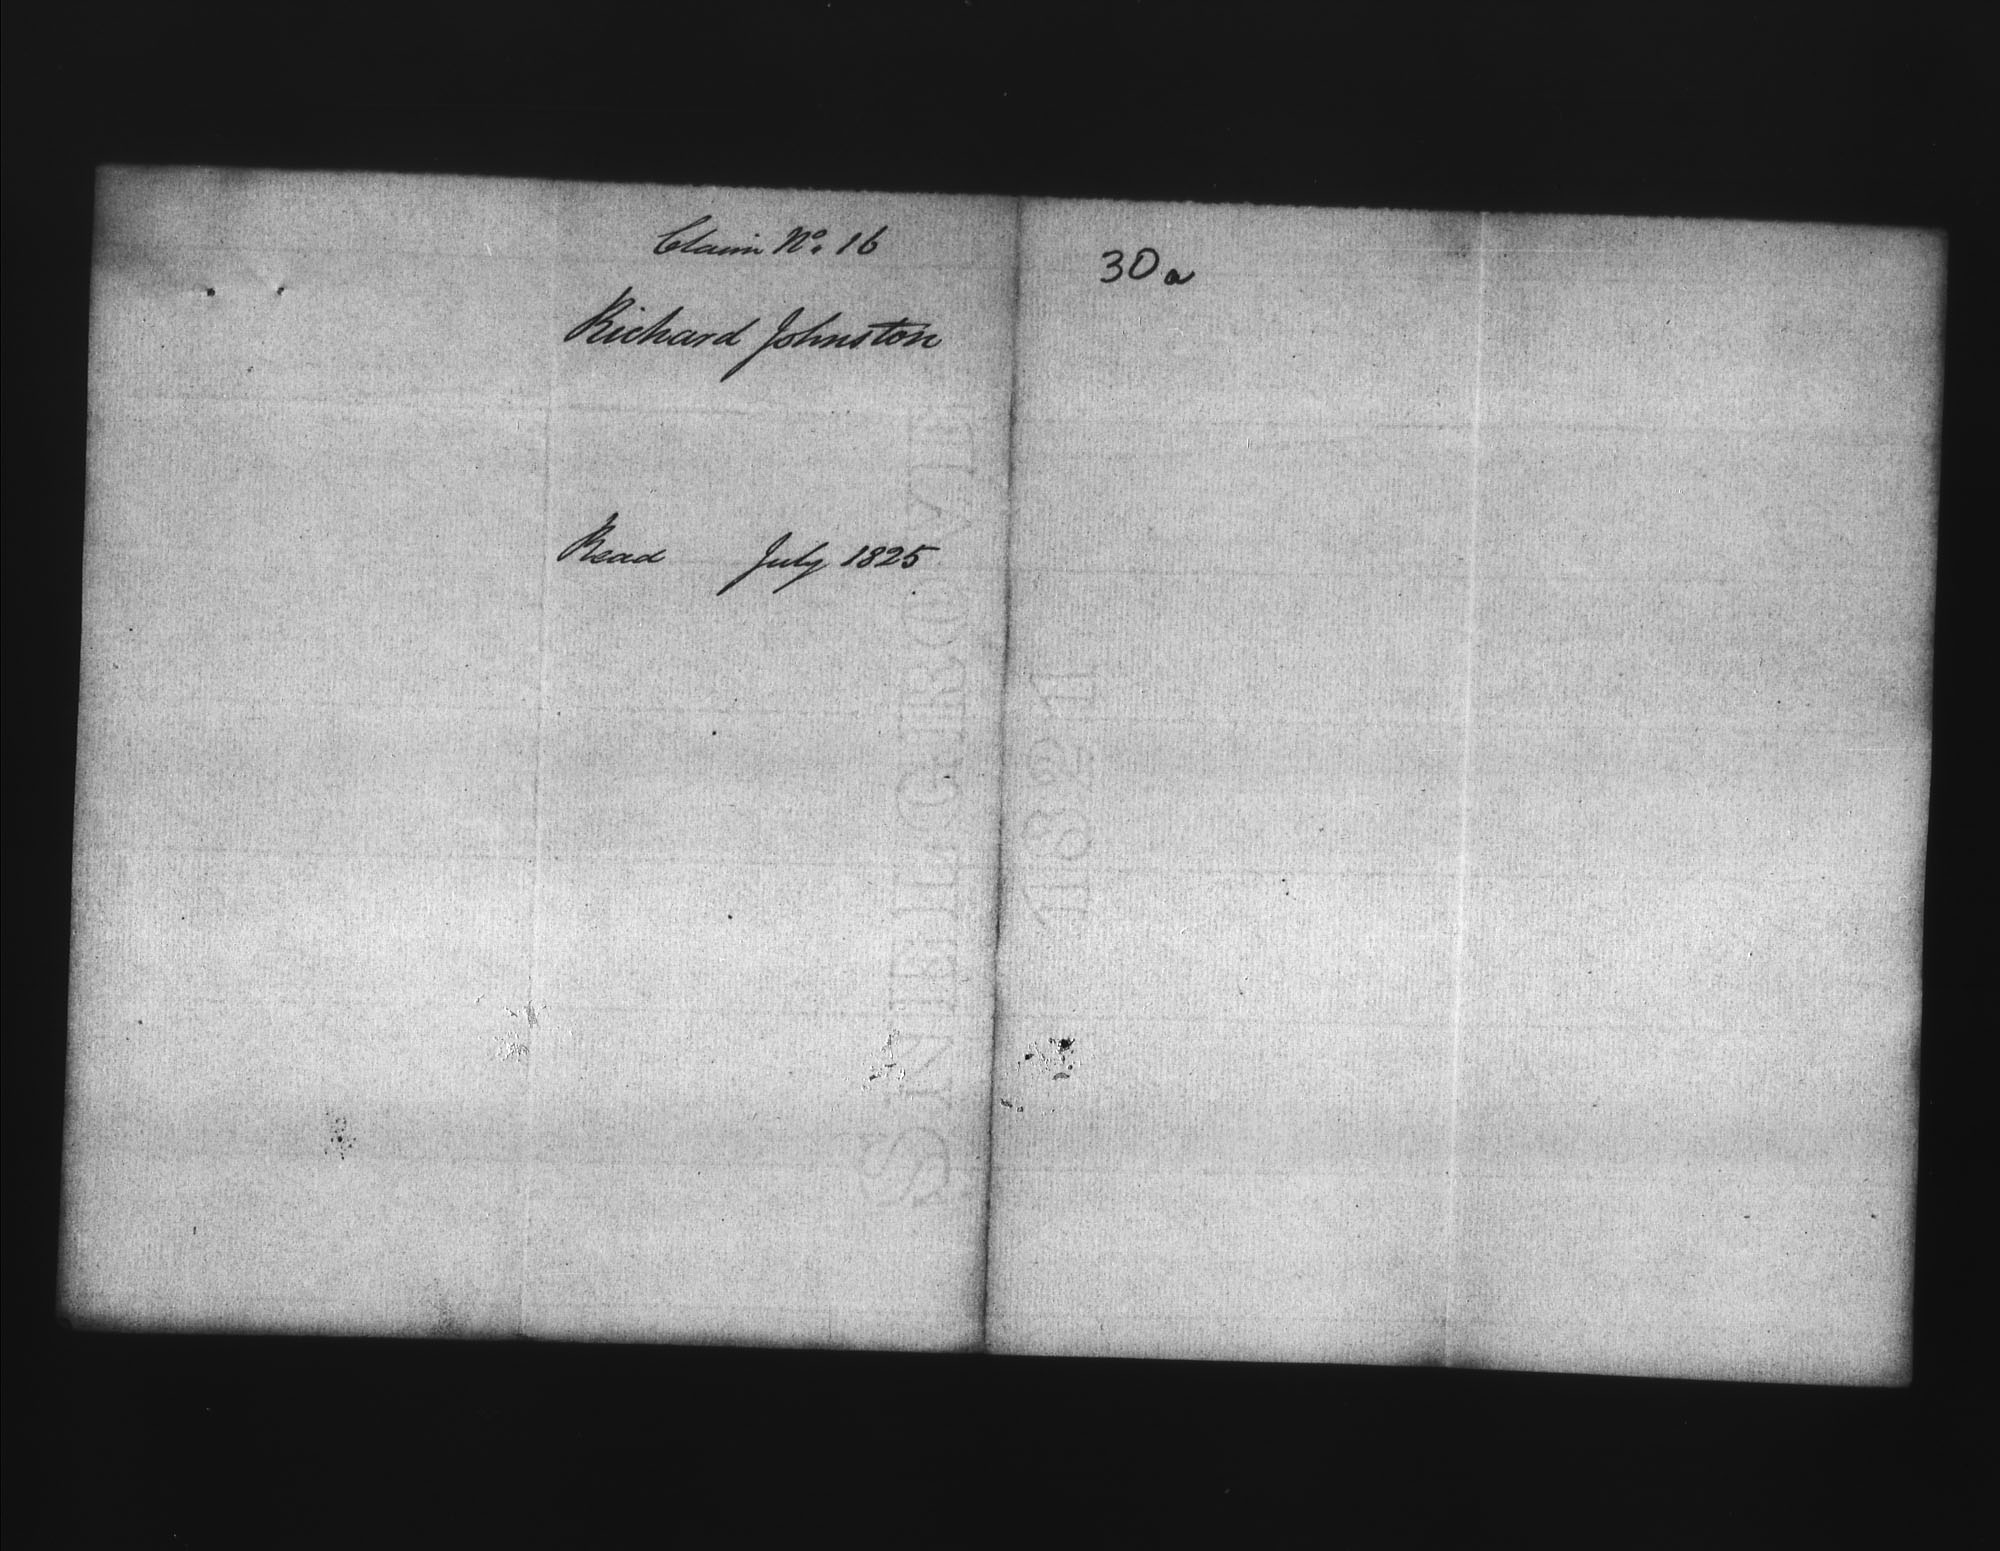 Claim No. 16
Richard Johnston
Read July 1825
30a
SNELGROVE
1821